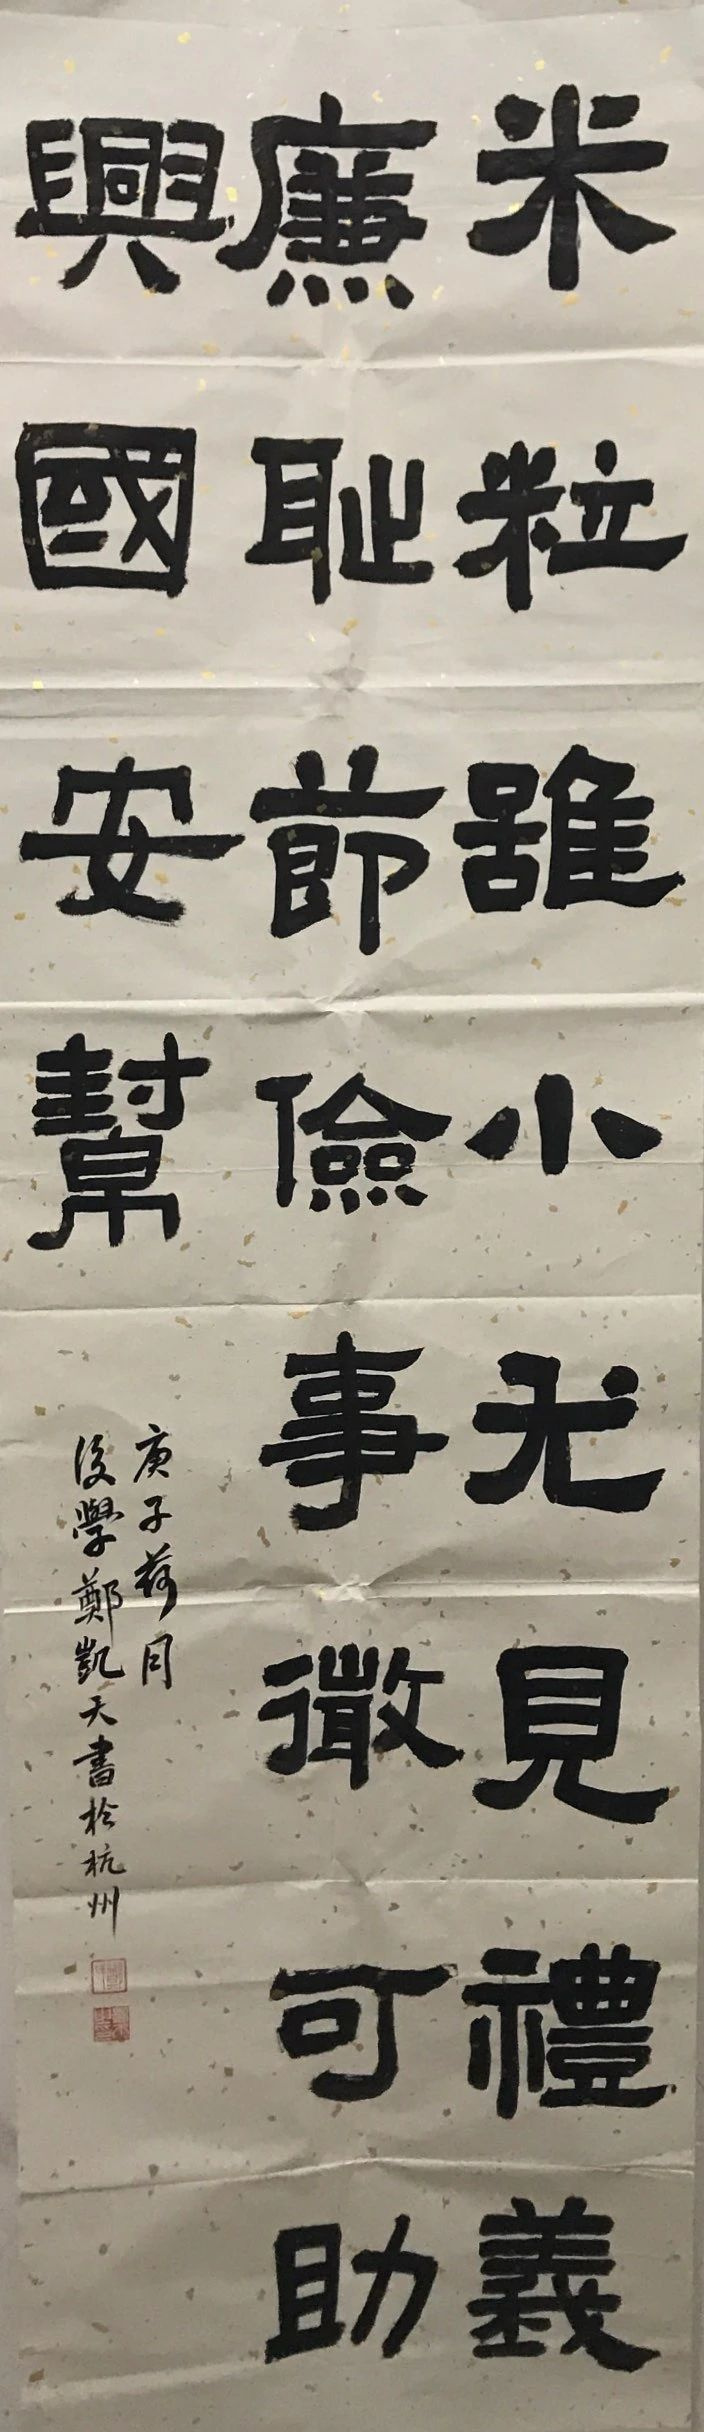 米粒雖小尤見禮義
廉耻節儉事微可助
興國安幫
庚子荷月
後學鄭凱天書於杭州